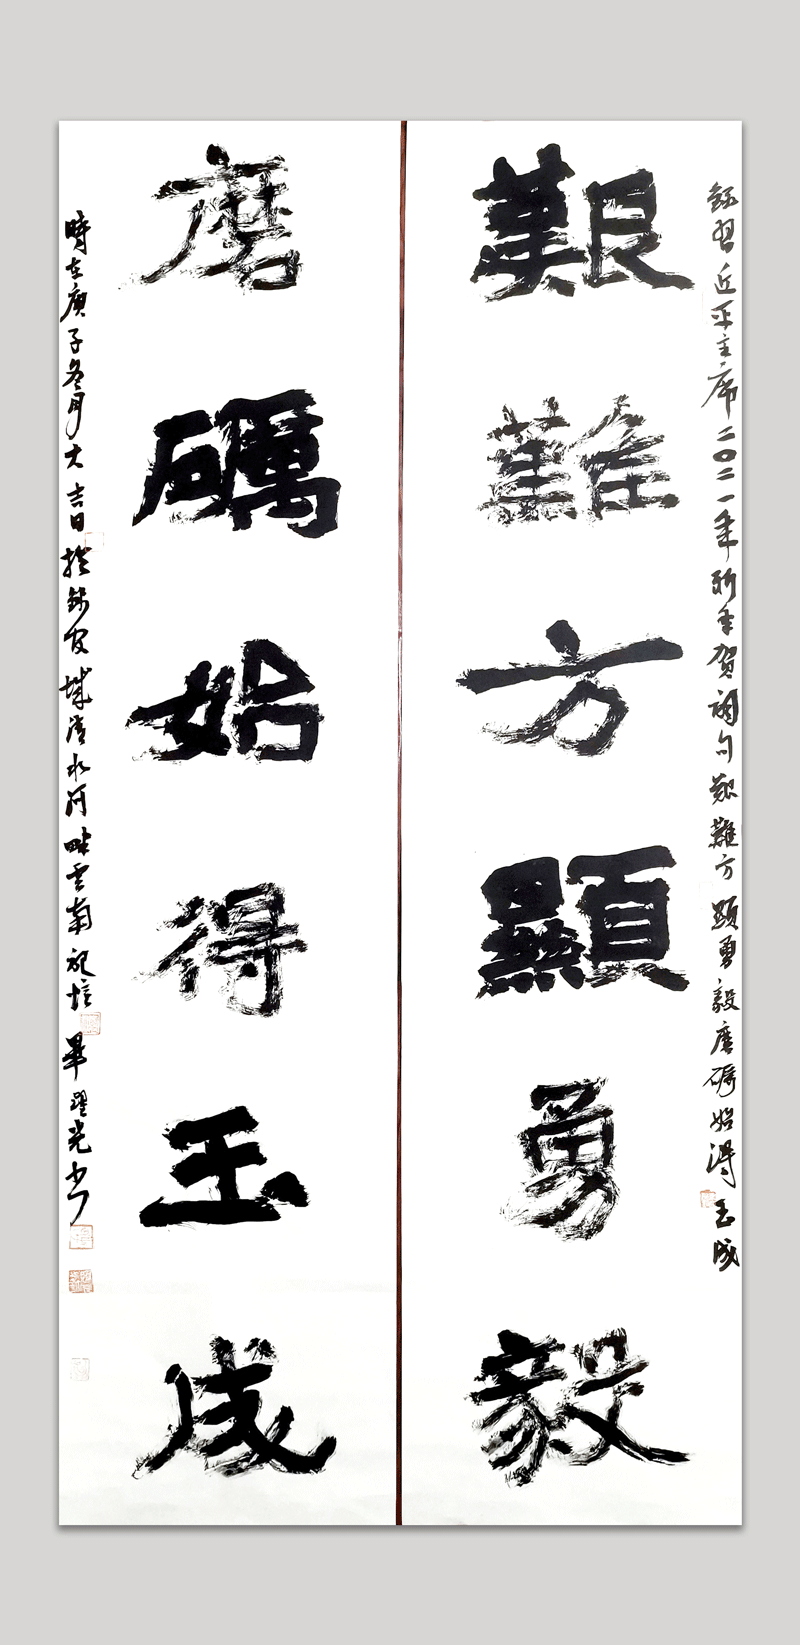 錄習近平主席二〇二一年新年賀詞句艱難方顯勇毅磨礪始得玉成
艱難方顯勇毅
磨礪始得玉成
時在庚子冬月大吉日於錦官城清水河畔雲南記培
畢躍光書